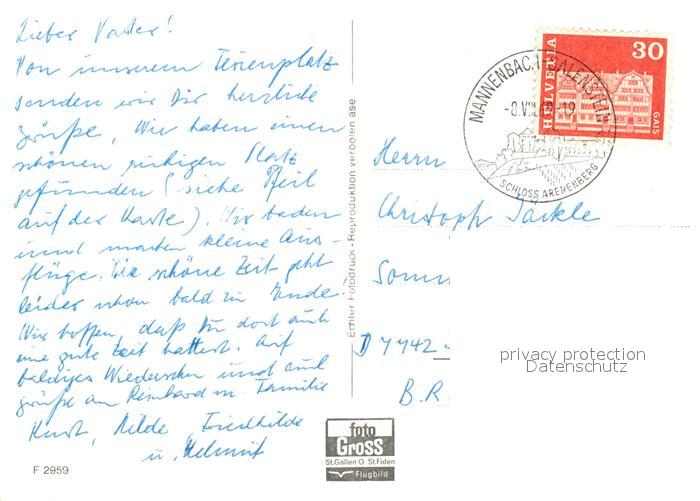 Lieber Vater!
Von unserem Ferienplatz
senden wir Dir herzliche
Grüße. Wir haben einen
schönen ruhigen Platz
gefunden (siehe Pfeil
auf der Karte). Wir baden
und machen kleine Aus-
flüge. Die schöne Zeit geht
leider schon bald zu Ende!
Wir hoffen, daß Du dort auch
eine gute Zeit hattest. Auf
baldiges Wiedersehn und auch
Grüße an Reinhard m. Familie
Hilde, Friedhilde
u. Helmut
F 2959
Echter Fotodruck - Reproduktion verboten
foto
Gross
St.Gallen O St.Fiden
Flugbild
HELVETIA
30
GAIS
MANNENBACH-SALENSTEIN
SCHLOSS ARENENBERG
Herrn
Christoph Jäckle
Somm
D 7742
B.R
privacy protection
Datenschutz